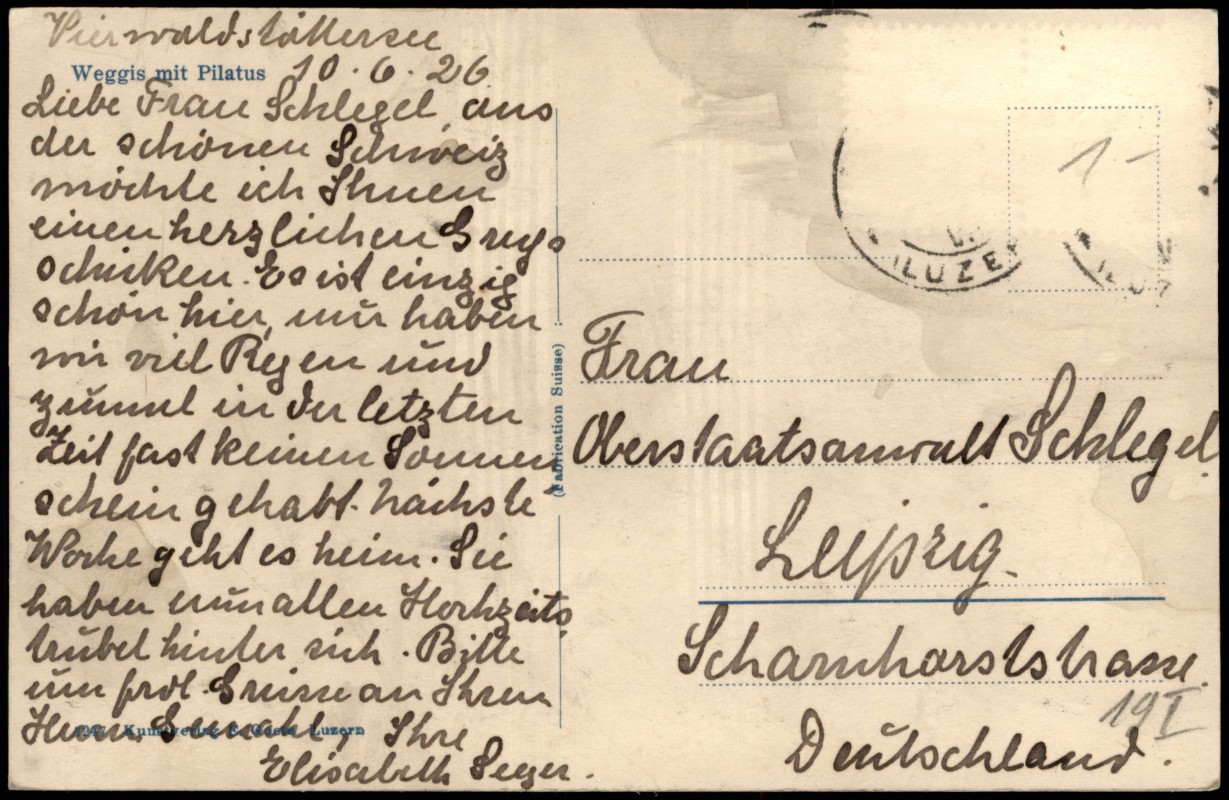 Vierwaldstättersee
Weggis mit Pilatus 10.6.26
Liebe Frau Schlegel, aus
der schönen Schweiz
möchte ich Ihnen
einen herzlichen Gruss
schicken. Es ist einzig
schön hier, nur haben
wir viel Regen und
zumal in der letzten
Zeit fast keinen Sonnen
schein gehabt. Nächste
Woche geht es heim. Sie
haben nun allen Hochzeits
trubel hinter sich. Bitte
um frdl. Grüsse an Ihren
Herrn Gemahl, Ihre
Elisabeth
Kunstverlag E. Goetz Luzern
(Fabrication Suisse)
1-
LUZE
Frau
Oberstaatsanwalt Schlegel
Leipzig.
Scharnhorststrasse.
19 I
Deutschland.